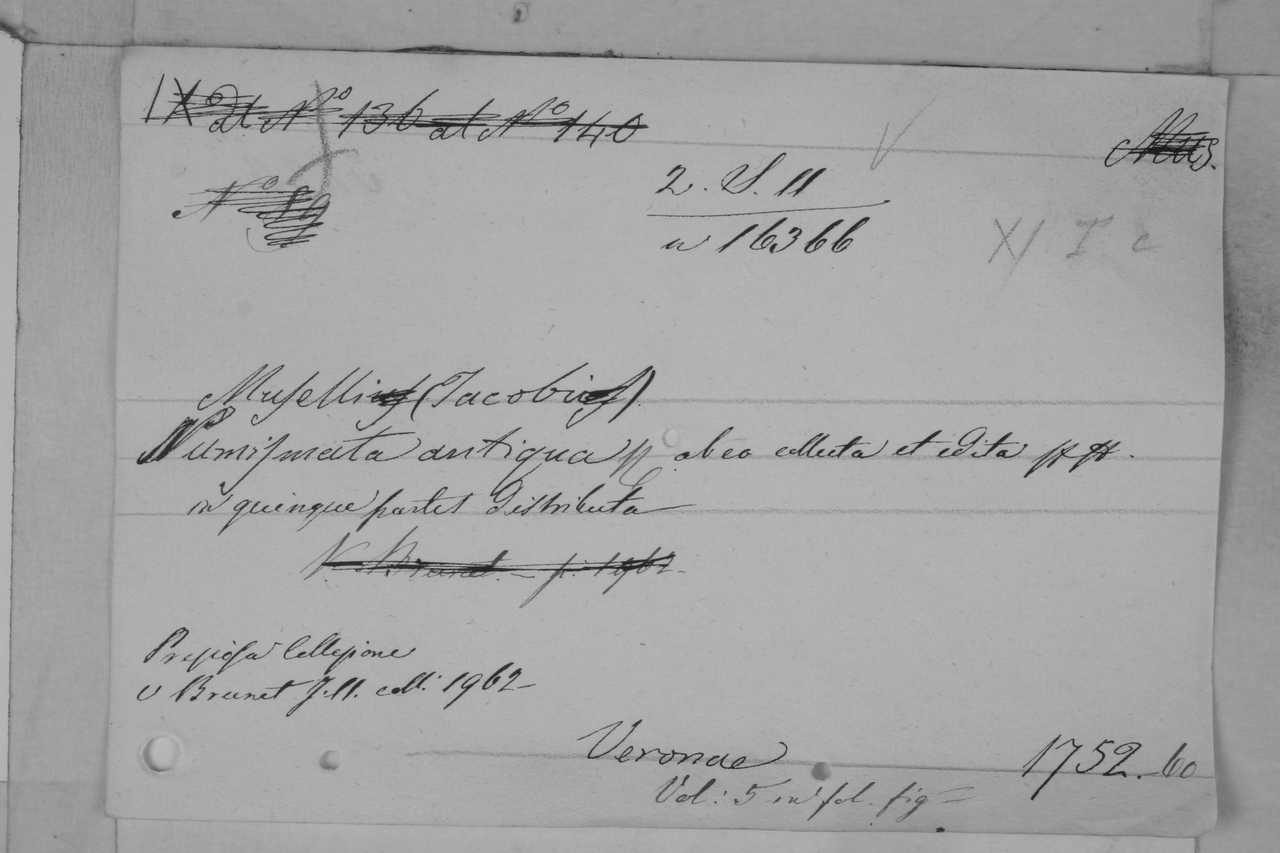 dal N° 136 al N° 140
Mus.
N° 89
2. S. 11
a 16366
X I c
Muselli (Jacobi)
Numismata antiqua ab eo collecta et edita
in quinque partes distributa
V. Brunet. – p. 1962
Preziosa Collezione
V Brunet T. II. coll: 1962
Veronae 1752-60
Vol: 5 in fol. fig